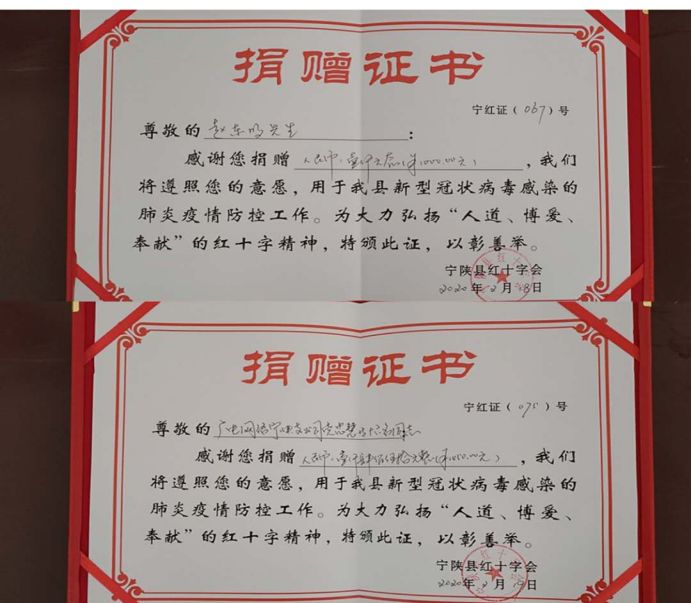 捐赠证书
宁红证（067）号
尊敬的 赵东 先生：
感谢您捐赠 人民币：壹仟元（¥1000.00元），我们
将遵照您的意愿，用于我县新型冠状病毒感染的
肺炎疫情防控工作。为大力弘扬“人道、博爱、
奉献”的红十字精神，特颁此证，以彰善举。
宁陕县红十字会
2020年2月18日
捐赠证书
宁红证（075）号
尊敬的 广电网络宁陕支公司 同志
感谢您捐赠 人民币：壹仟 元，我们
将遵照您的意愿，用于我县新型冠状病毒感染的
肺炎疫情防控工作。为大力弘扬“人道、博爱、
奉献”的红十字精神，特颁此证，以彰善举。
宁陕县红十字会
2020年2月 日